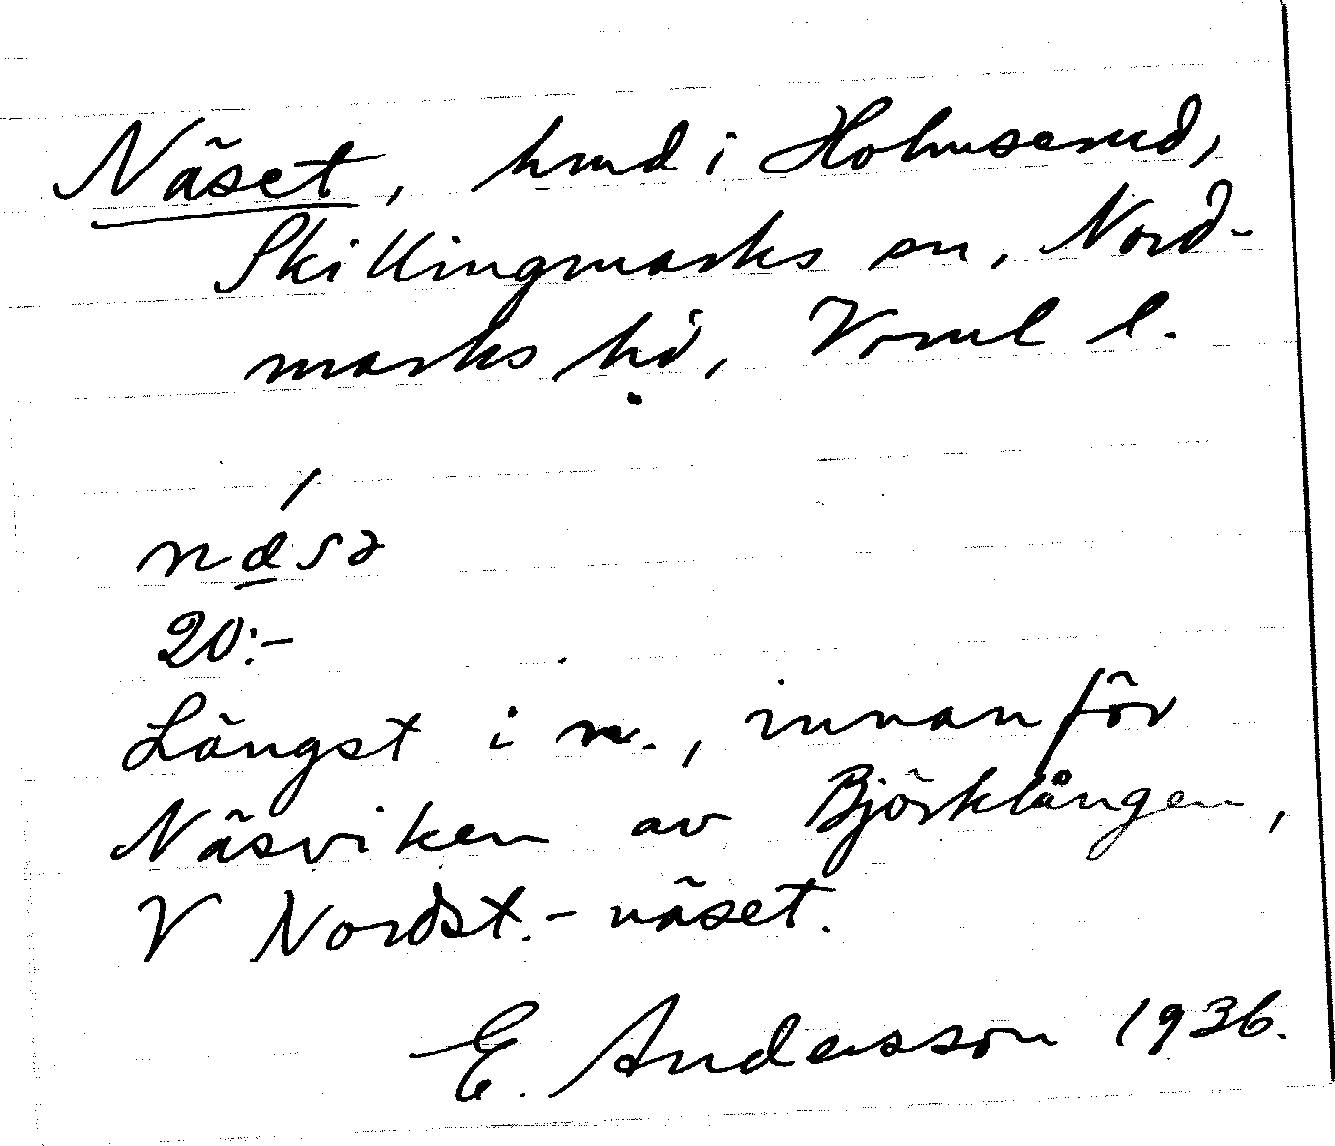 Näset, hmd i Holmserud,
Skillingmarks sn, Nord-
marks hd, Vrml l.
nása
20:-
Längst i n., innanför
Näsviken av Björklången,
V Nordst.-näset.
E. Andersson 1936.